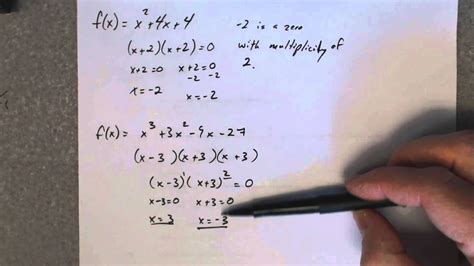 f(x) = x² + 4x + 4
-2 is a zero
(x+2)(x+2) = 0
with multiplicity of
x+2=0 x+2=0
2.
-2 -2
x=-2 x=-2
f(x) = x³ + 3x² - 9x - 27
(x-3)(x+3)(x+3)
(x-3)¹(x+3)² = 0
x-3=0 x+3=0
x=3 x=-3